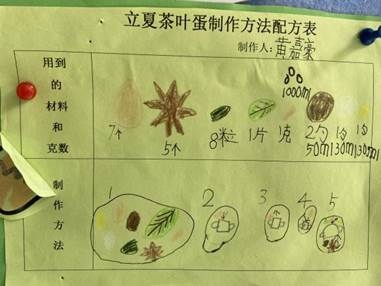 立夏茶叶蛋制作方法配方表
制作人:黄嘉豪
用到的材料和克数
1000ml
7个 5个 8粒 1片 克 2勺 1勺 1勺
50ml 30ml 30ml
制作方法
1 2 3 4 5